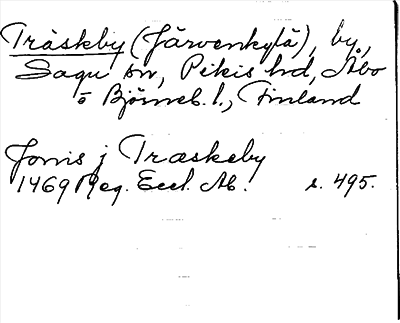 Träskby (Järvenkylä), by,
Sagu sn, Pikis hd, Åbo
o Björneb. l., Finland
Jonis j Træskeby
1469 Reg. Eccl. Ab. s. 495.